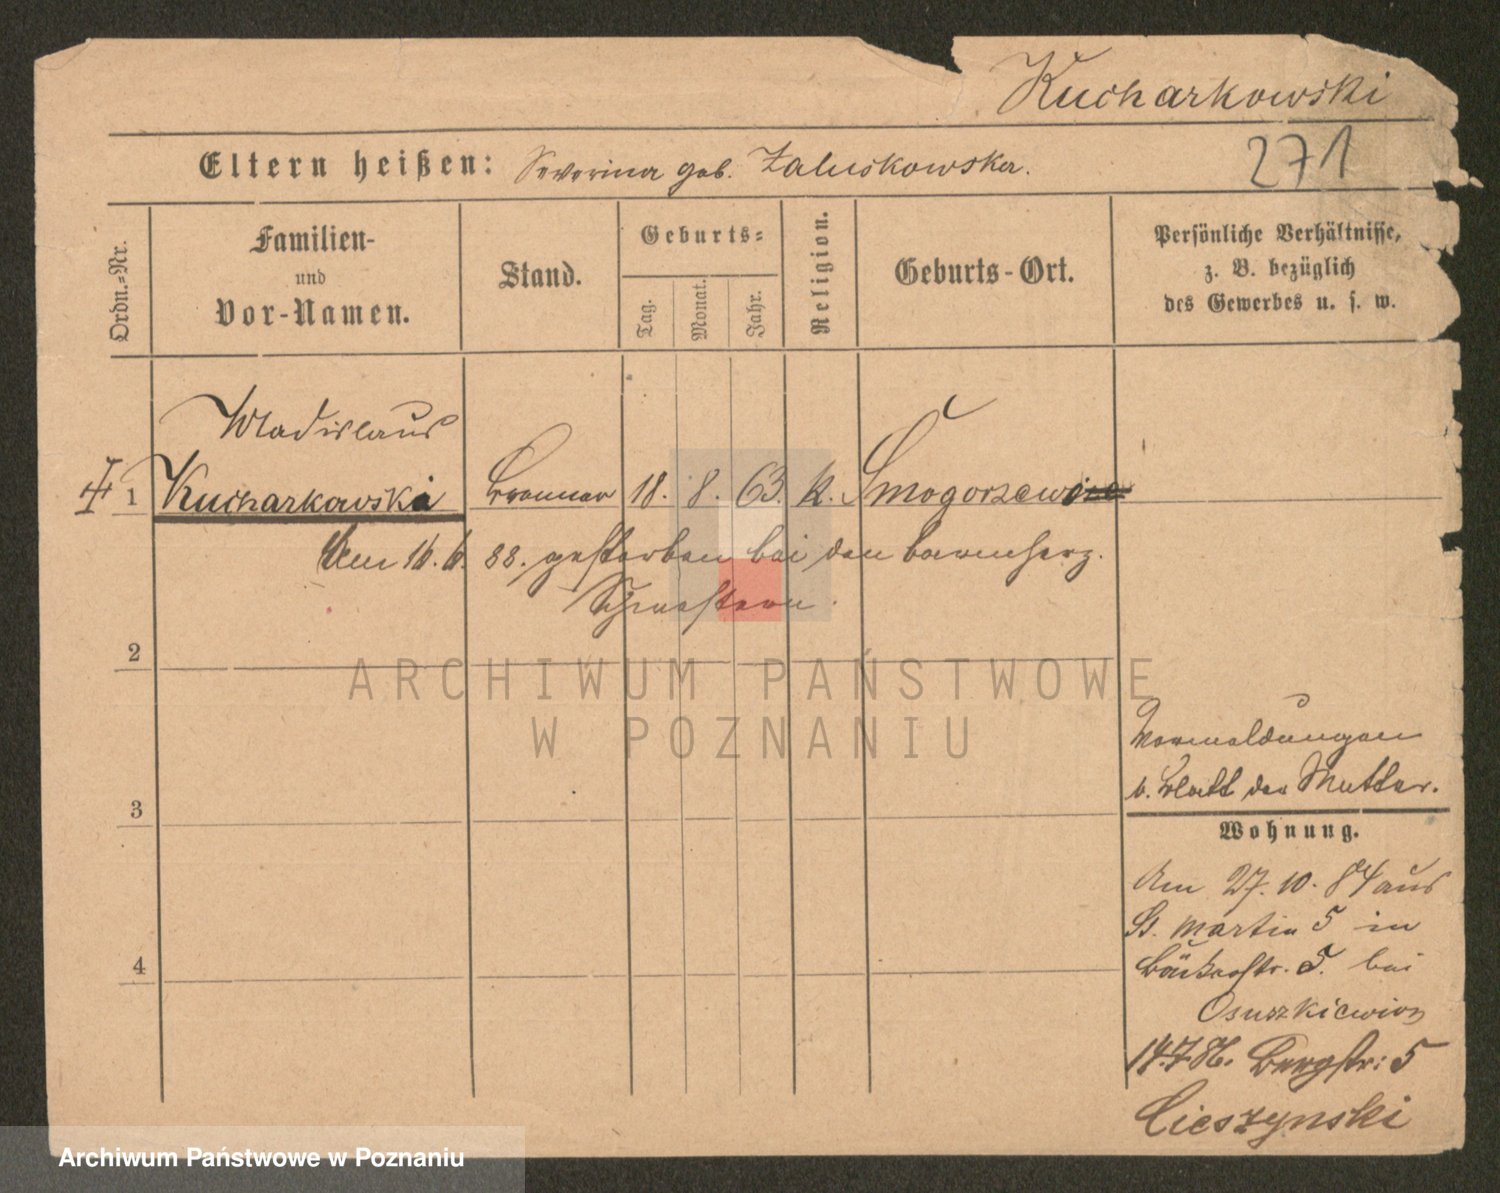 Kucharkowski
271
Eltern heißen: Severina geb. Zaluskowska.
Ordn.-Nr.
Familien-
und
Vor-Namen.
Stand.
Geburts-
Tag.
Monat.
Jahr.
Religion.
Geburts-Ort.
Persönliche Verhältnisse,
z. B. bezüglich
des Gewerbes u. s. w.
Wladislaus
1 Kucharkowski Brenner 18. 8. 63. k. Smogorzewo
Am 16. 6. 88. gestorben bei den barmherz.
Schwestern.
2
ARCHIWUM PAŃSTWOWE
W POZNANIU
Vermeldungen
v. Blatt der Mutter.
3
Wohnung.
Am 27. 10. 84 aus
St. Martin 5 in
Bäckerstr. 5. bei
Osuszkiewicz
4
14.7.86. Bergstr: 5
Cieszynski
Archiwum Państwowe w Poznaniu